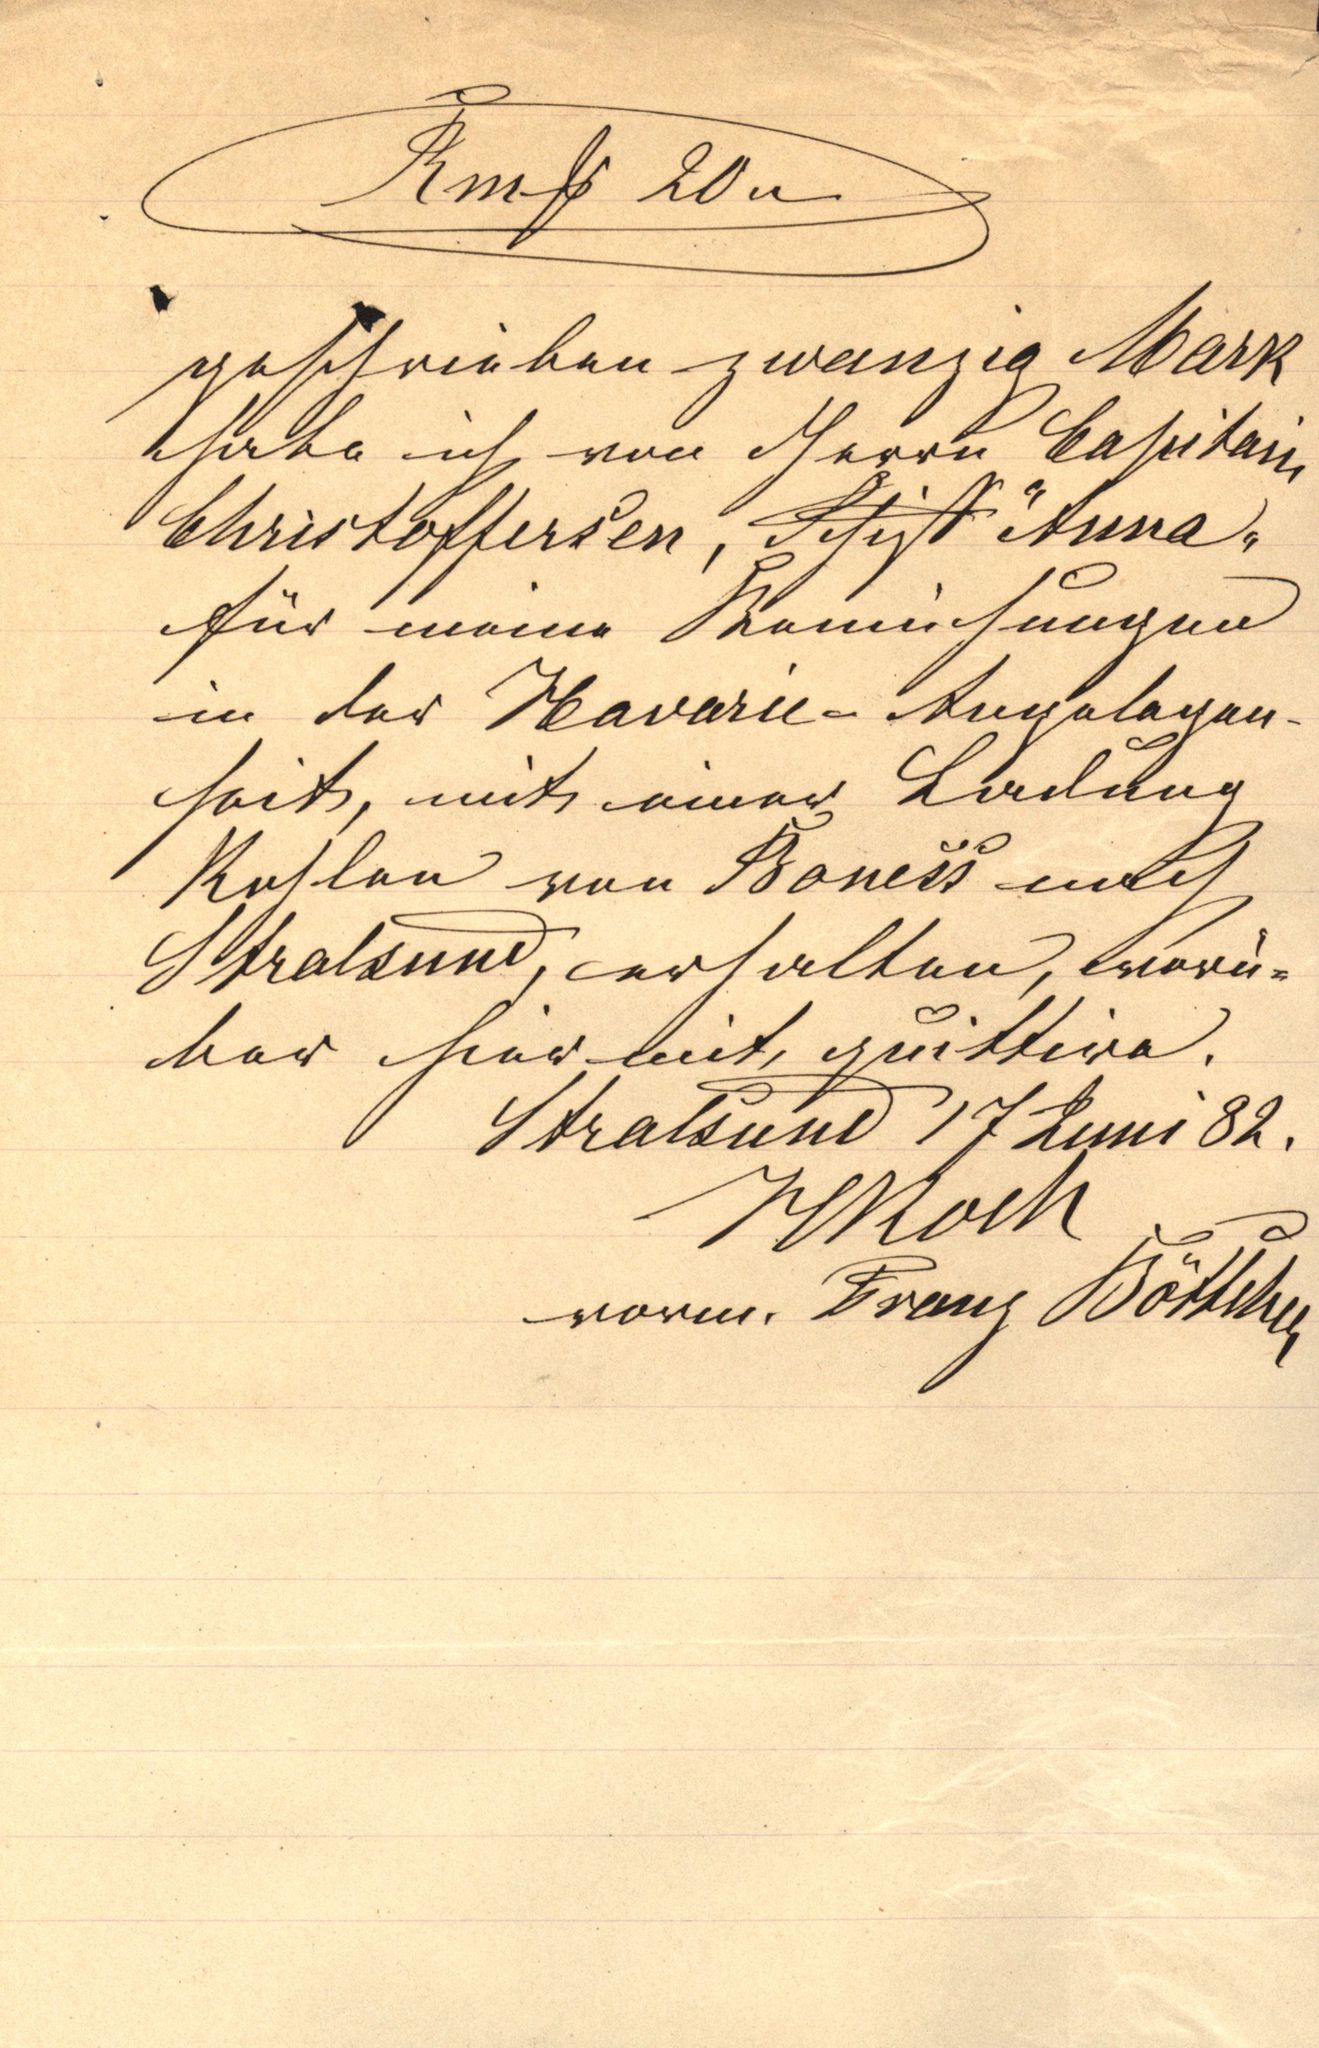 Rmk 20 „
geschrieben zwanzig Mark
habe ich von Herrn Capitain
Christoffersen, Schiff "Anna„
für meine Bemühungen
in der Havarie-Angelegen-
heit, mit einer Ladung
Kohlen von Boness nach
Stralsund, erhalten, worü-
ber hiermit, quittire.
Stralsund 17 Juni 82.
H Koch
vorm. Franz Böttcher